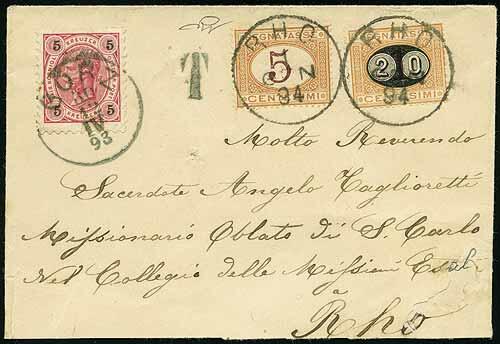 5 KREUZER 5
5 5
IV
93
T
SEGNATASSE
5
CENTESIMI
RHO
94
SEGNATASSE
20
CENTESIMI
RHO
94
Molto Reverendo
Sacerdote Angelo Taglioretti
Missionario Oblato di S. Carlo
Nel Collegio delle Missioni
a
Rho